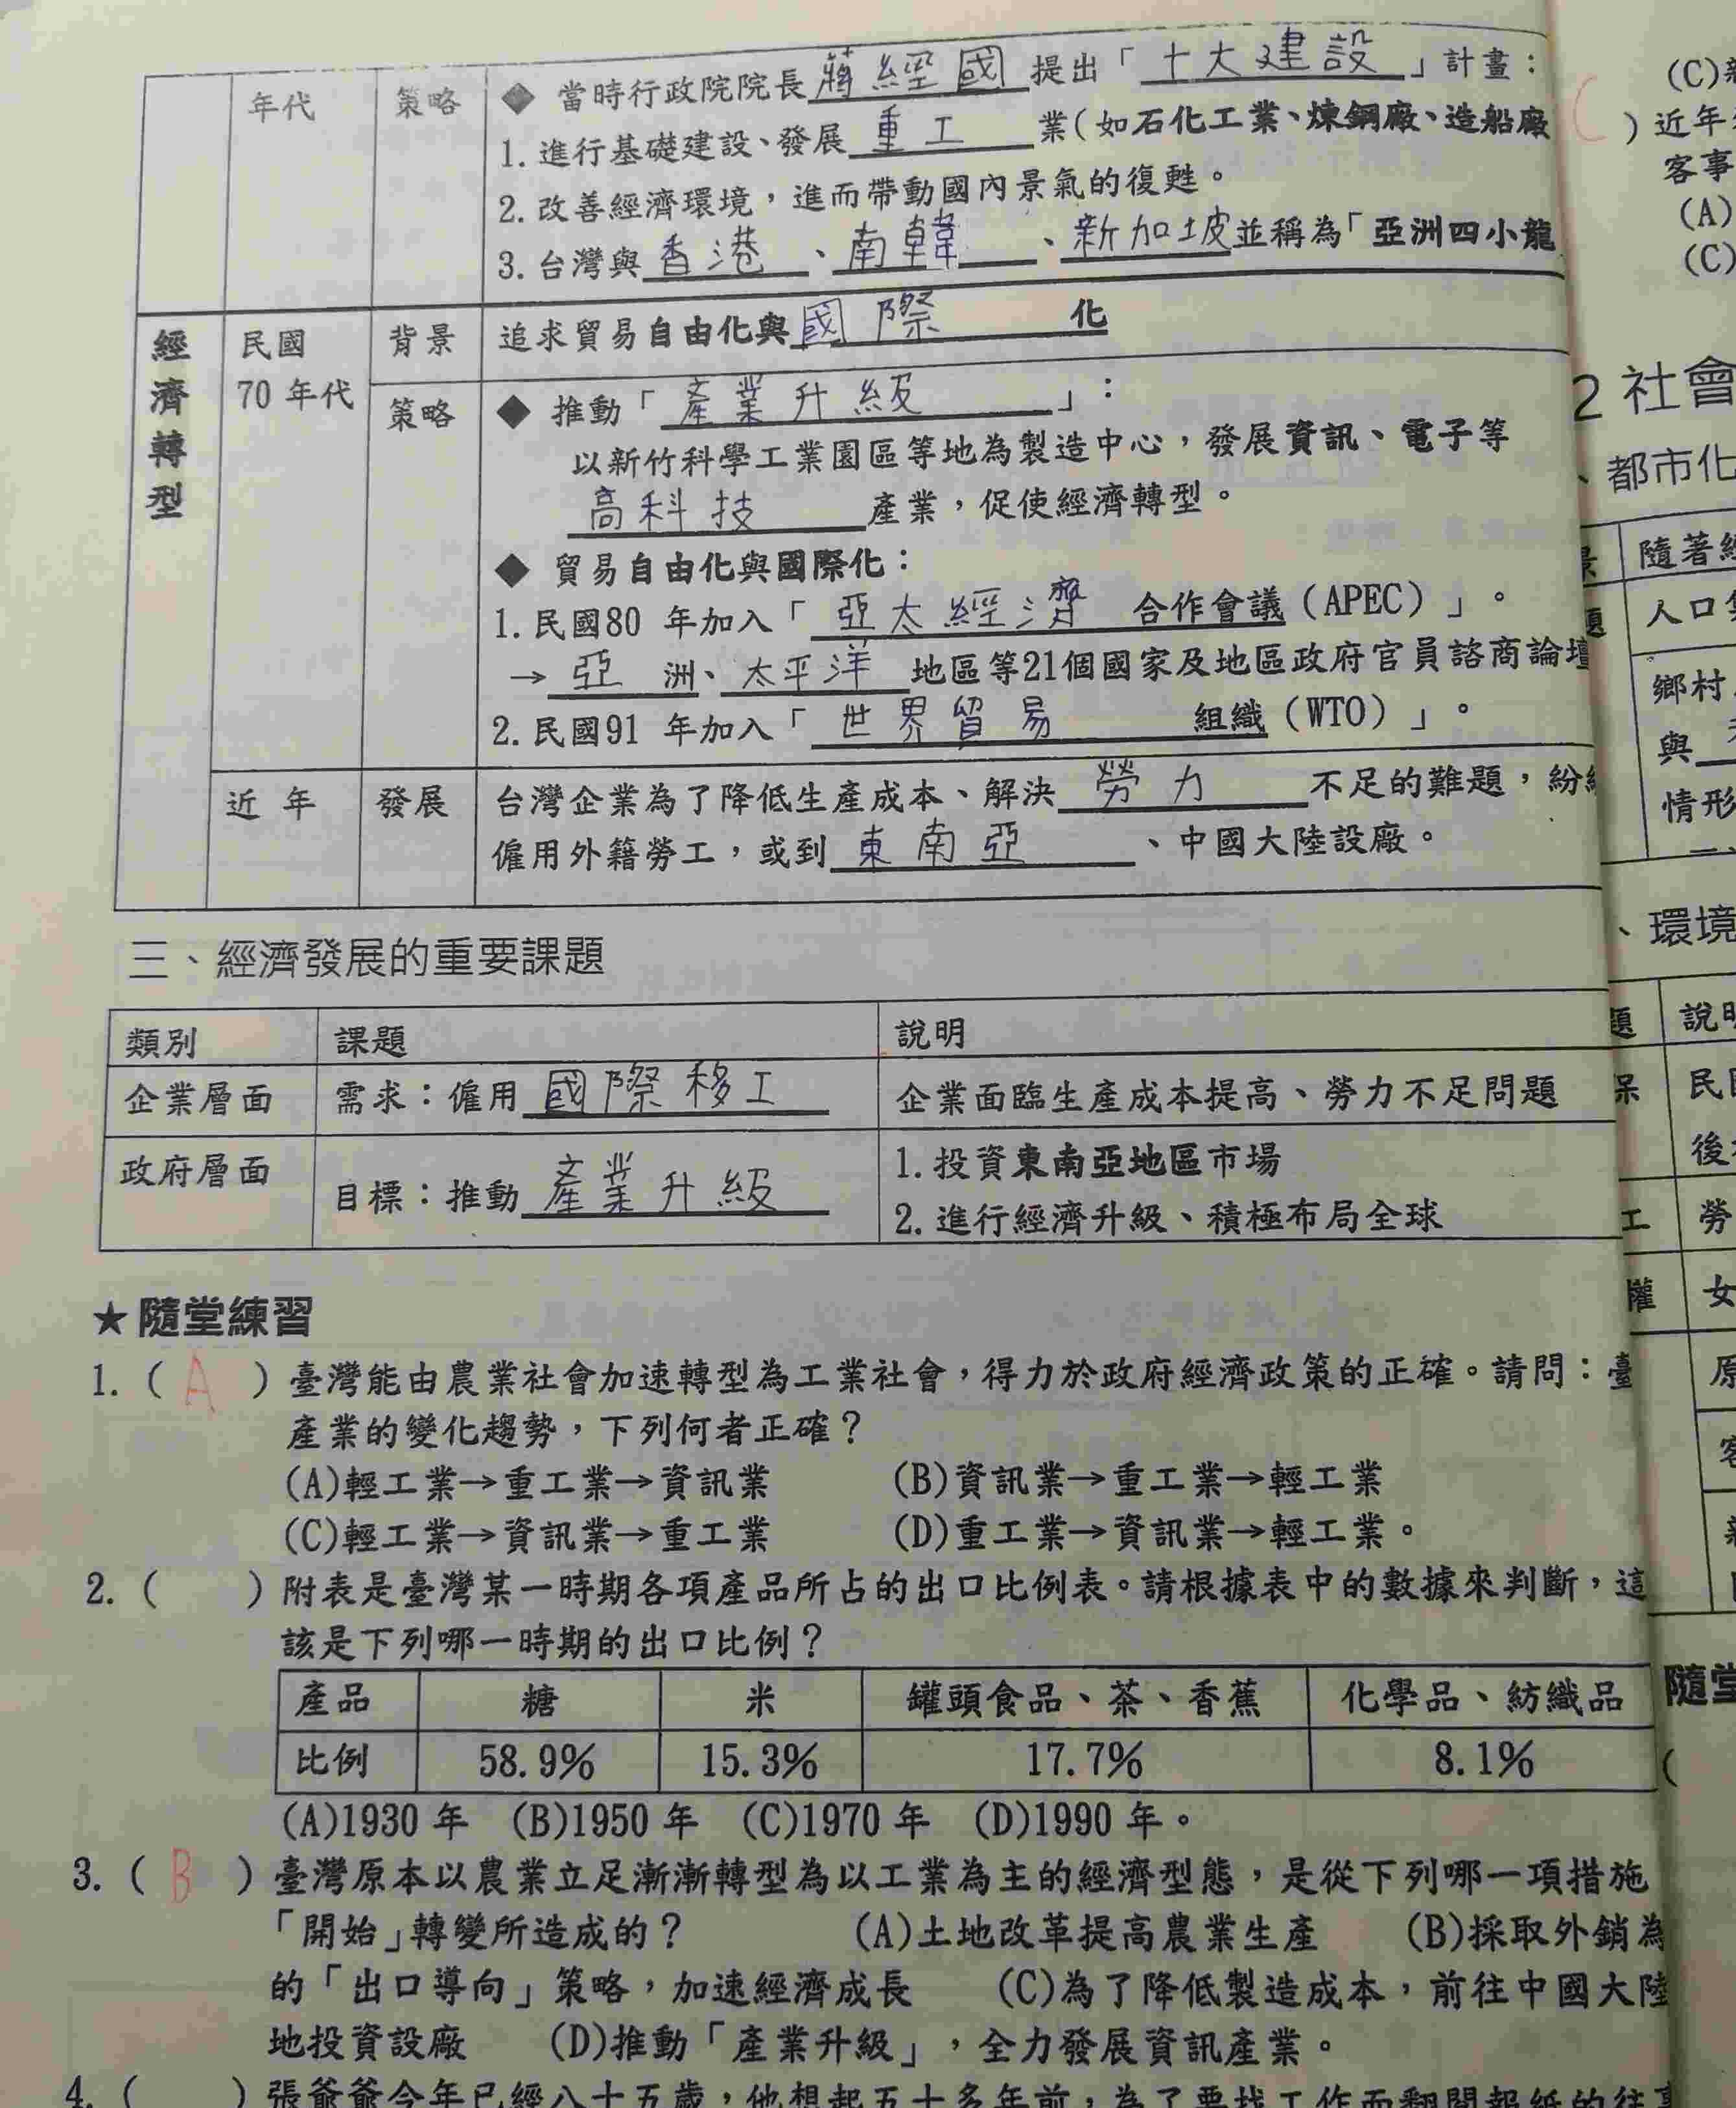 年代 策略 ◆ 當時行政院院長蔣經國提出「十大建設」計畫：
1. 進行基礎建設、發展重工業(如石化工業、煉鋼廠、造船廠
2. 改善經濟環境，進而帶動國內景氣的復甦。
3. 台灣與香港、南韓、新加坡並稱為「亞洲四小龍
經濟轉型
民國
70 年代
背景 追求貿易自由化與國際化
策略 ◆ 推動「產業升級」：
以新竹科學工業園區等地為製造中心，發展資訊、電子等
高科技產業，促使經濟轉型。
◆ 貿易自由化與國際化：
1. 民國80 年加入「亞太經濟合作會議（APEC）」。
→亞洲、太平洋地區等21個國家及地區政府官員諮商論壇
2. 民國91 年加入「世界貿易組織（WTO）」。
近 年 發展 台灣企業為了降低生產成本、解決勞力不足的難題，紛
僱用外籍勞工，或到東南亞、中國大陸設廠。
三、經濟發展的重要課題
類別 課題 說明
企業層面 需求：僱用國際移工 企業面臨生產成本提高、勞力不足問題
政府層面 目標：推動產業升級 1. 投資東南亞地區市場
2. 進行經濟升級、積極布局全球
★隨堂練習
1. ( A ) 臺灣能由農業社會加速轉型為工業社會，得力於政府經濟政策的正確。請問：臺
產業的變化趨勢，下列何者正確？
(A)輕工業→重工業→資訊業 (B)資訊業→重工業→輕工業
(C)輕工業→資訊業→重工業 (D)重工業→資訊業→輕工業。
2. ( ) 附表是臺灣某一時期各項產品所占的出口比例表。請根據表中的數據來判斷，這
該是下列哪一時期的出口比例？
產品 糖 米 罐頭食品、茶、香蕉 化學品、紡織品
比例 58.9% 15.3% 17.7% 8.1%
(A)1930 年 (B)1950 年 (C)1970 年 (D)1990 年。
3. ( B ) 臺灣原本以農業立足漸漸轉型為以工業為主的經濟型態，是從下列哪一項措施
「開始」轉變所造成的？ (A)土地改革提高農業生產 (B)採取外銷為
的「出口導向」策略，加速經濟成長 (C)為了降低製造成本，前往中國大陸
地投資設廠 (D)推動「產業升級」，全力發展資訊產業。
4. ( ) 張爺爺今年已經八十五歲，他想起五十多年前，為了要找工作而翻開報紙的往事
(C)
C ) 近年
客事
(A)
(C)
2 社會
、都市化
隨著
人口
鄉村
與
情形
、環境
題 說明
保 民
後
工 勞
權 女
原
隨堂
(